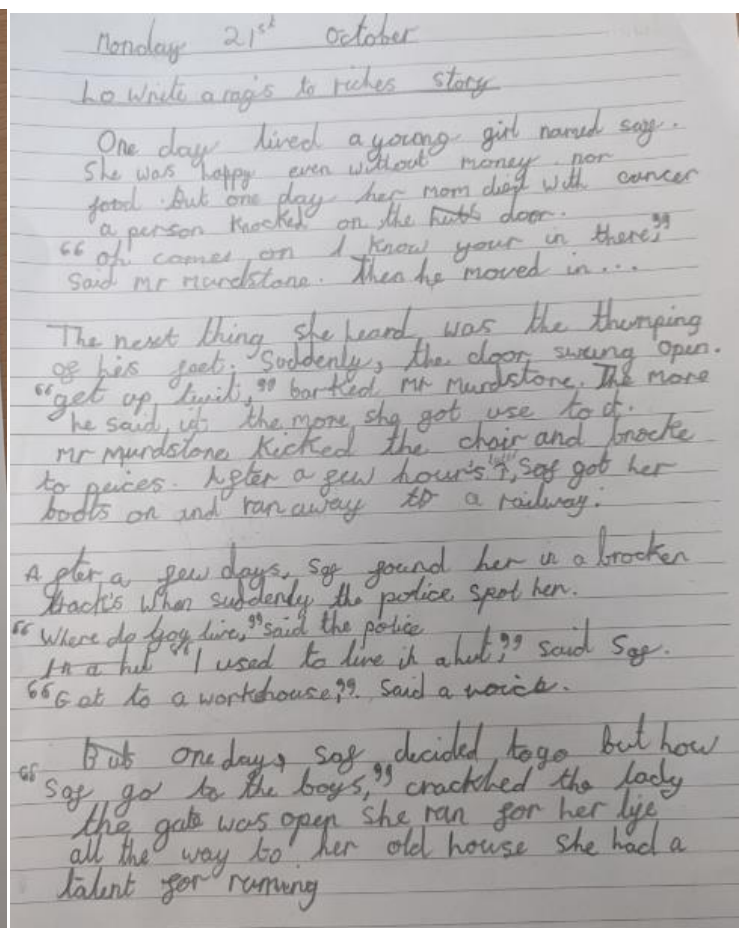 Monday 21st October
Lo Write a rag's to riches story
One day lived a young girl named saf.
She was happy even without money nor
food. But one day her mom died with cancer
a person knocked on the hutts door.
"oh comes on I know your in there,"
Said mr murdstone. Then he moved in...
The next thing she heard was the thumping
of his feet. Suddenly, the door swung open.
"get up twit," barked mr murdstone. The more
he said it the more she got use to it.
mr murdstone kicked the chair and brocke
to peices. After a few hour's, Saf got her
boots on and ran away to a railway.
After a few days, Saf found her in a brocken
track's when suddenly the police spot her.
"Where do you live," said the police
In a hut "I used to live in a hut," said Saf.
"Got to a workhouse," said a
But one day, saf decided to go but how
"Saf go to the boys," crackhed the lady
the gate was open she ran for her life
all the way to her old house she had a
talent for running